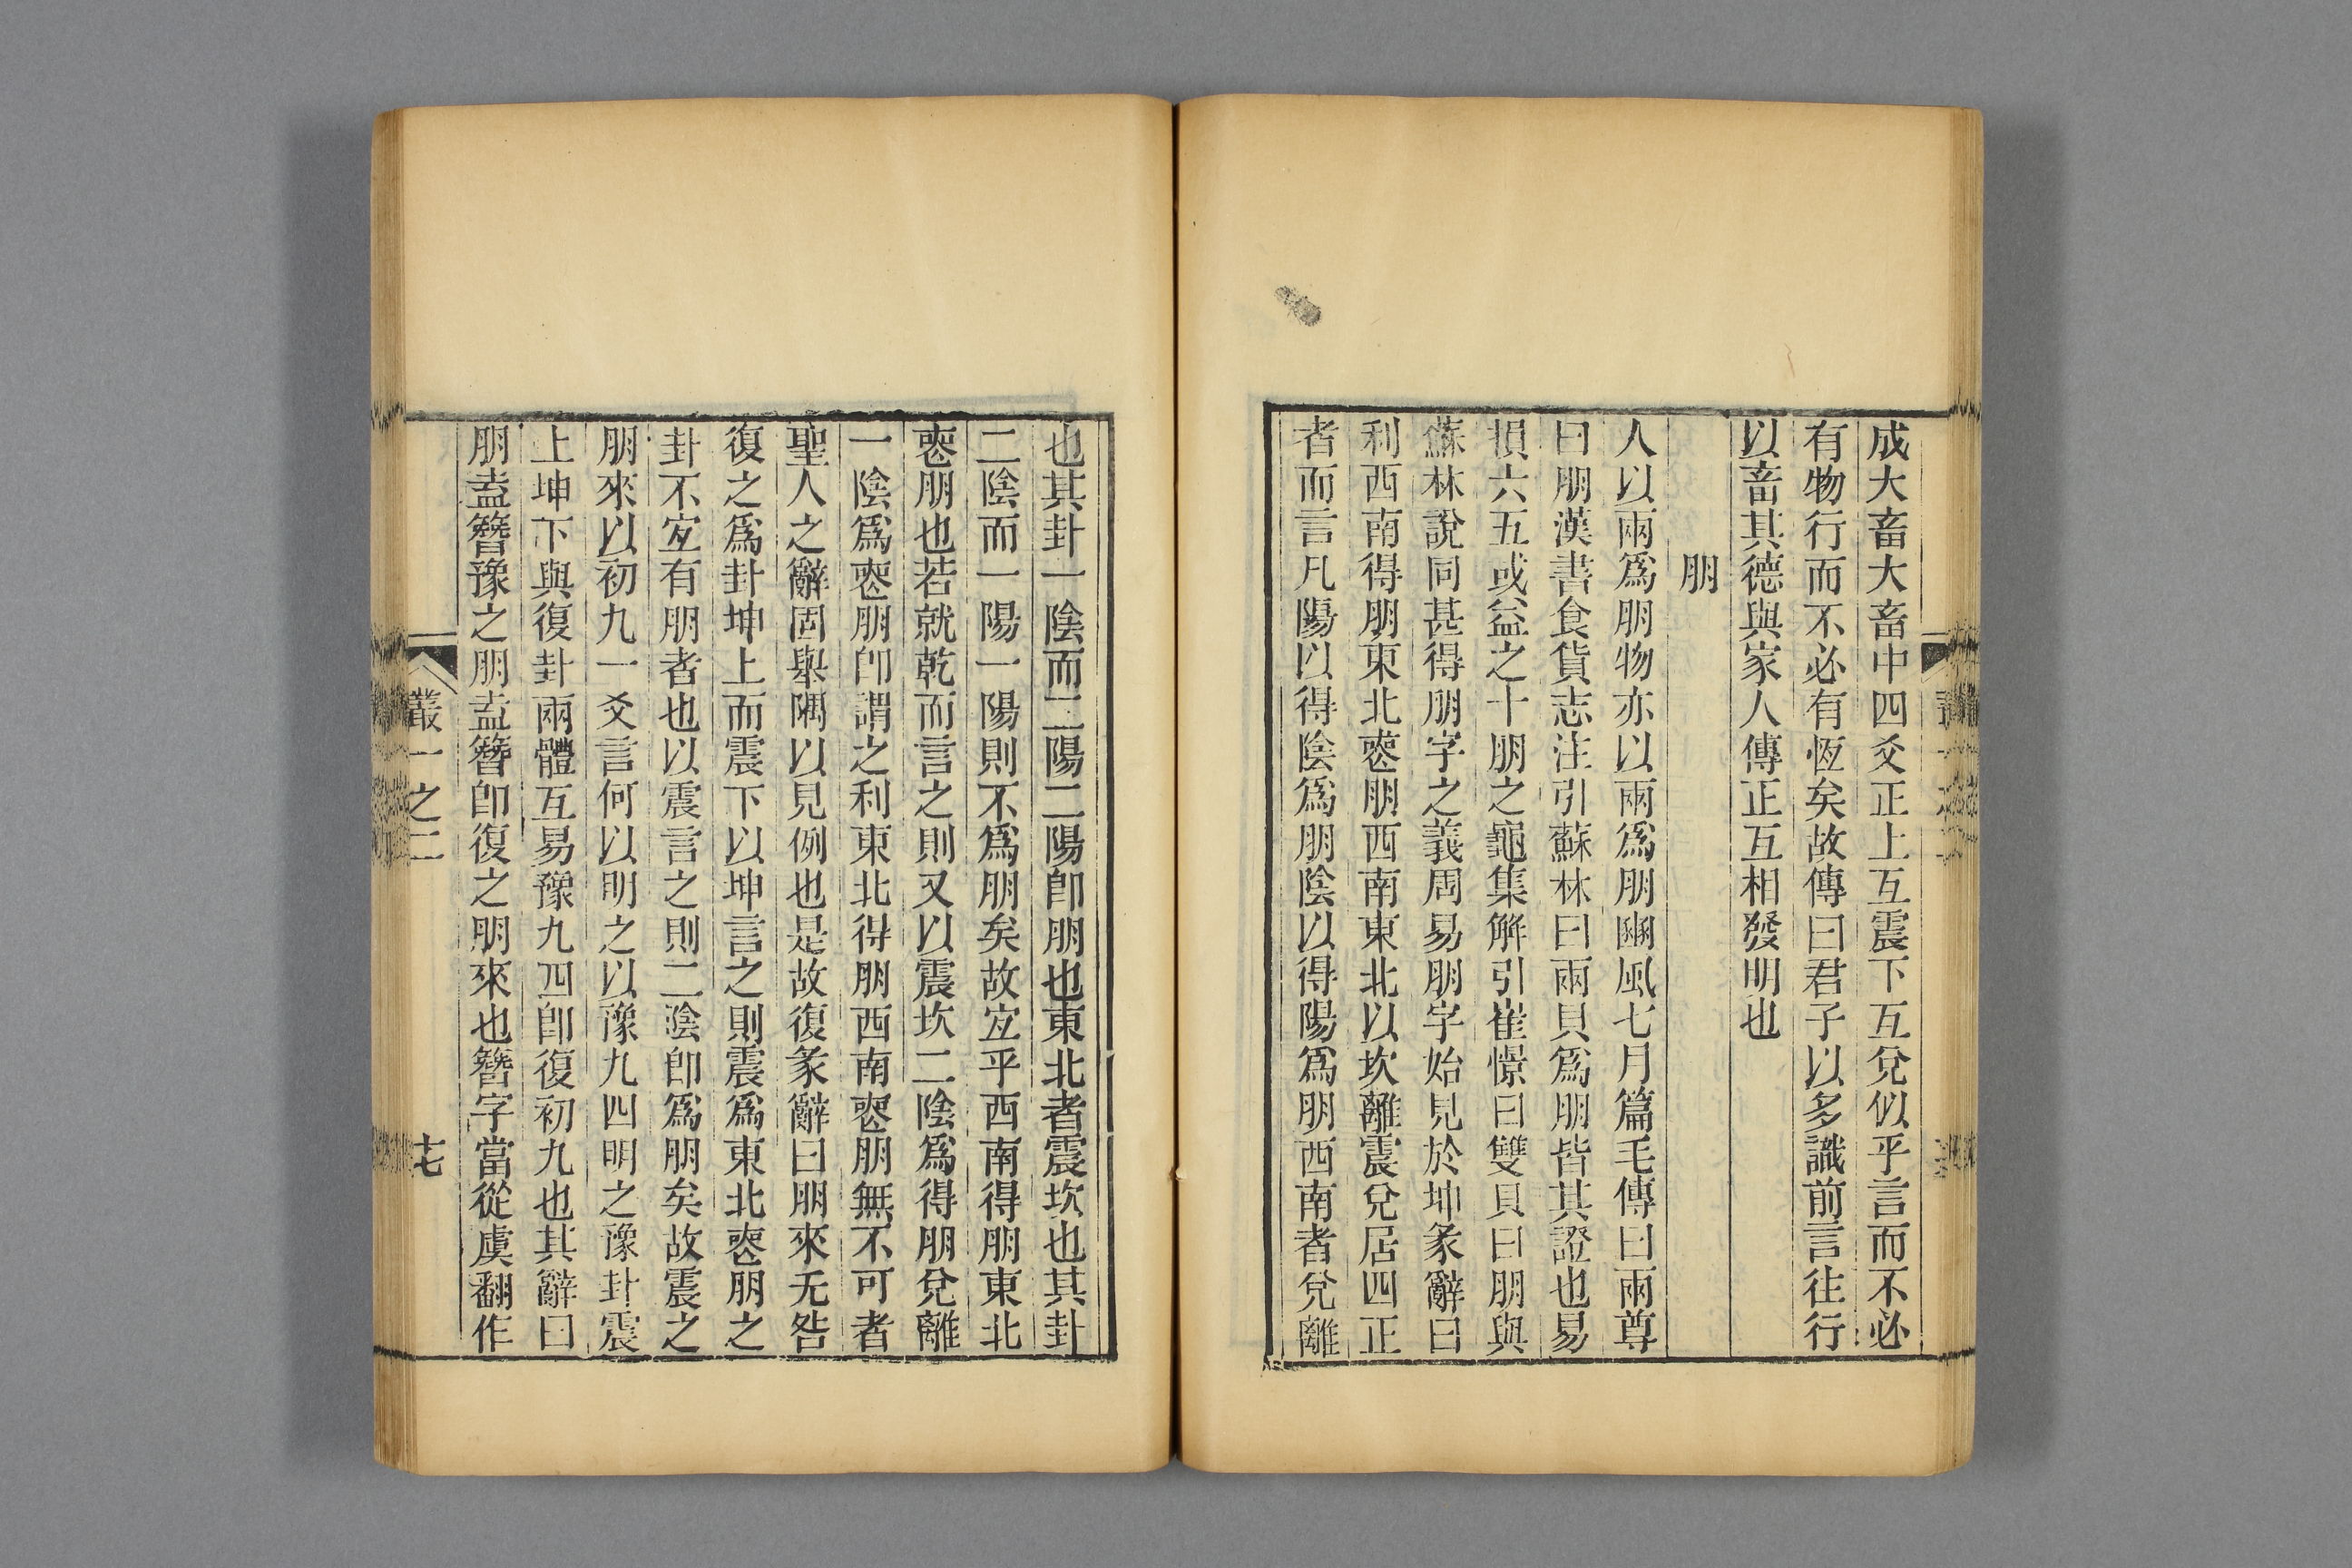 成大畜大畜中四爻正上互震下互兌似乎言而不必
有物行而不必有恆矣故傳曰君子以多識前言往行
以畜其德與家人傳正互相發明也
朋
人以兩爲朋物亦以兩爲朋豳風七月篇毛傳曰兩尊
曰朋漢書食貨志注引蘇林曰兩貝爲朋皆其證也易
損六五或益之十朋之龜集解引崔憬曰雙貝曰朋與
蘇林說同甚得朋字之義周易朋字始見於坤彖辭曰
利西南得朋東北䘮朋西南東北以坎離震兌居四正
者而言凡陽以得陰爲朋陰以得陽爲朋西南者兌離
也其卦一陰而二陽二陽卽朋也東北者震坎也其卦
二陰而一陽一陽則不爲朋矣故宐乎西南得朋東北
䘮朋也若就乾而言之則又以震坎二陰爲得朋兌離
一陰爲䘮朋卽謂之利東北得朋西南䘮朋無不可者
聖人之辭固舉隅以見例也是故復彖辭曰朋來无咎
復之爲卦坤上而震下以坤言之則震爲東北䘮朋之
卦不宐有朋者也以震言之則二陰卽爲朋矣故震之
朋來以初九一爻言何以明之以豫九四明之豫卦震
上坤下與復卦兩體互易豫九四卽復初九也其辭曰
朋盍簪豫之朋盍簪卽復之朋來也簪字當從虞翻作
叢一之二
十七